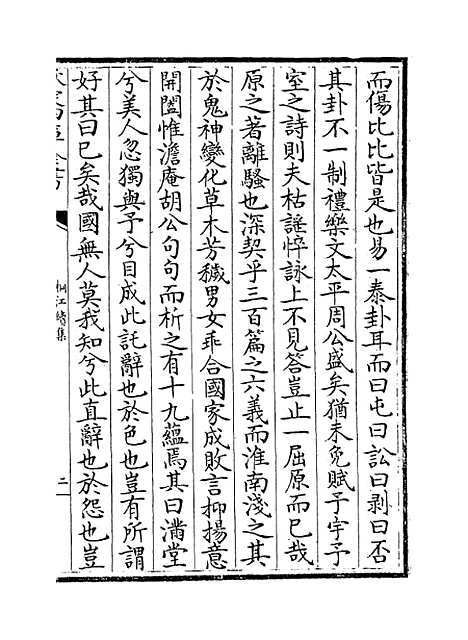 而傷比比皆是也易一泰卦耳而曰屯曰訟曰剥曰否
其卦不一制禮樂文太平周公盛矣猶未免賦予宇予
室之詩則夫枯謡悴詠上不見答豈止一屈原而已哉
原之著離騷也深契乎三百篇之六義而淮南淺之其
於鬼神變化草木芳穢男女乖合國家成敗言抑揚意
開闔惟澹庵胡公句句而析之有十九藴焉其曰滿堂
兮美人忽獨與予兮目成此託辭也於色也豈有所謂
好其曰已矣哉國無人莫我知兮此直辭也於怨也豈
桐江續集
二